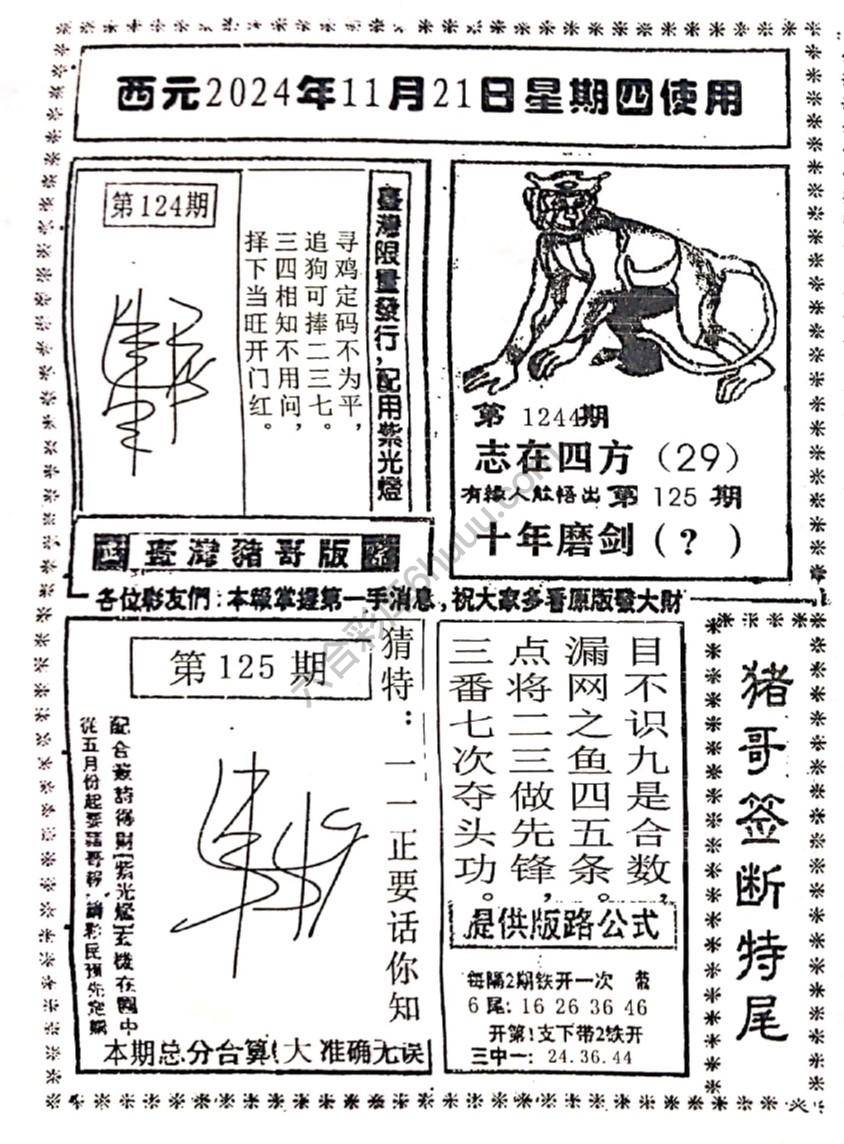 西元2024年11月21日星期四使用
第124期
臺灣限量發行,配用紫光燈
寻鸡定码不为平,
追狗可捧二三七。
三四相知不用问,
择下当旺开门红。
第 1244期
志在四方（29）
有緣人能悟出 第 125 期
十年磨剑（？）
臺灣豬哥版
各位彩友們:本報掌握第一手消息,祝大家多看原版發大財
第125期
猜特：一一正要话你知
配合簽詩得財(紫光燈)玄機在圖中
從五月份起要豬哥報 請彩民預先定購
本期总分合算!大 准确无误
目不识九是合数,
漏网之鱼四五条。
点将二三做先锋,
三番七次夺头功。
提供版路公式
每隔2期铁开一次
6尾: 16 26 36 46
开第1支下带2铁开
三中一: 24.36.44
猪哥签断特尾
六合彩coo6huuu.com